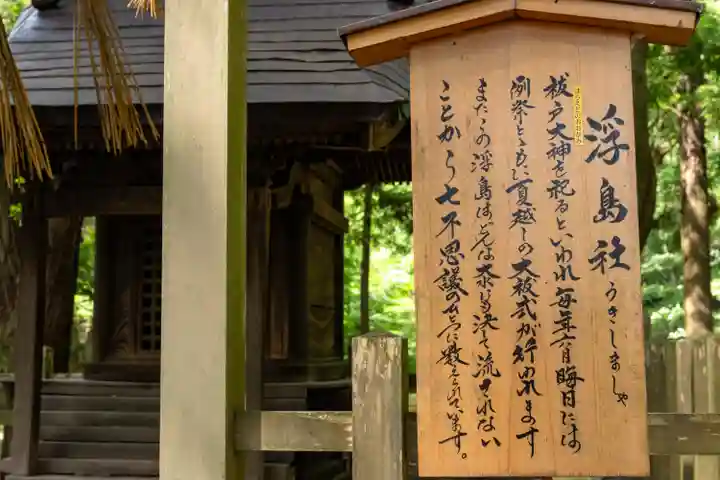 浮島社 うきしましゃ
はらえどのおおかみ
祓戸大神を祀るといわれ毎年六月晦日には
例祭とともに夏越しの大祓式が行われます
またこの浮島はどんな大水にも決して流されない
ことから七不思議の一つに数えられています。